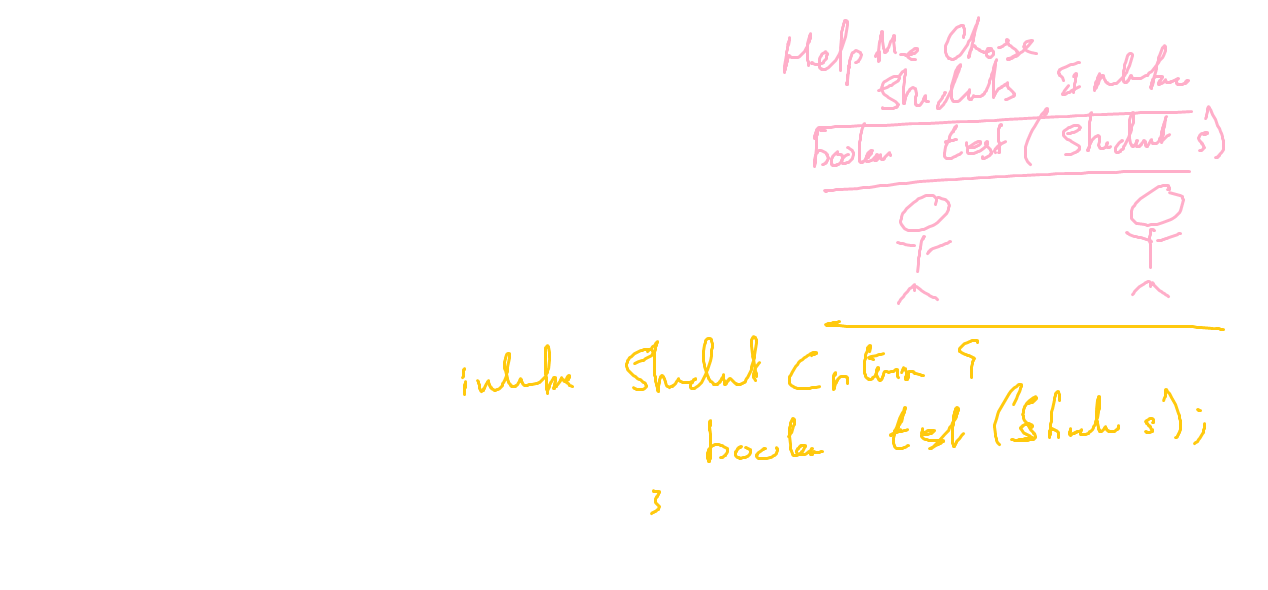 Help Me Chose
Students Interface
boolean test ( Student s )
interface Student Criterion {
boolean test ( Student s ) ;
}